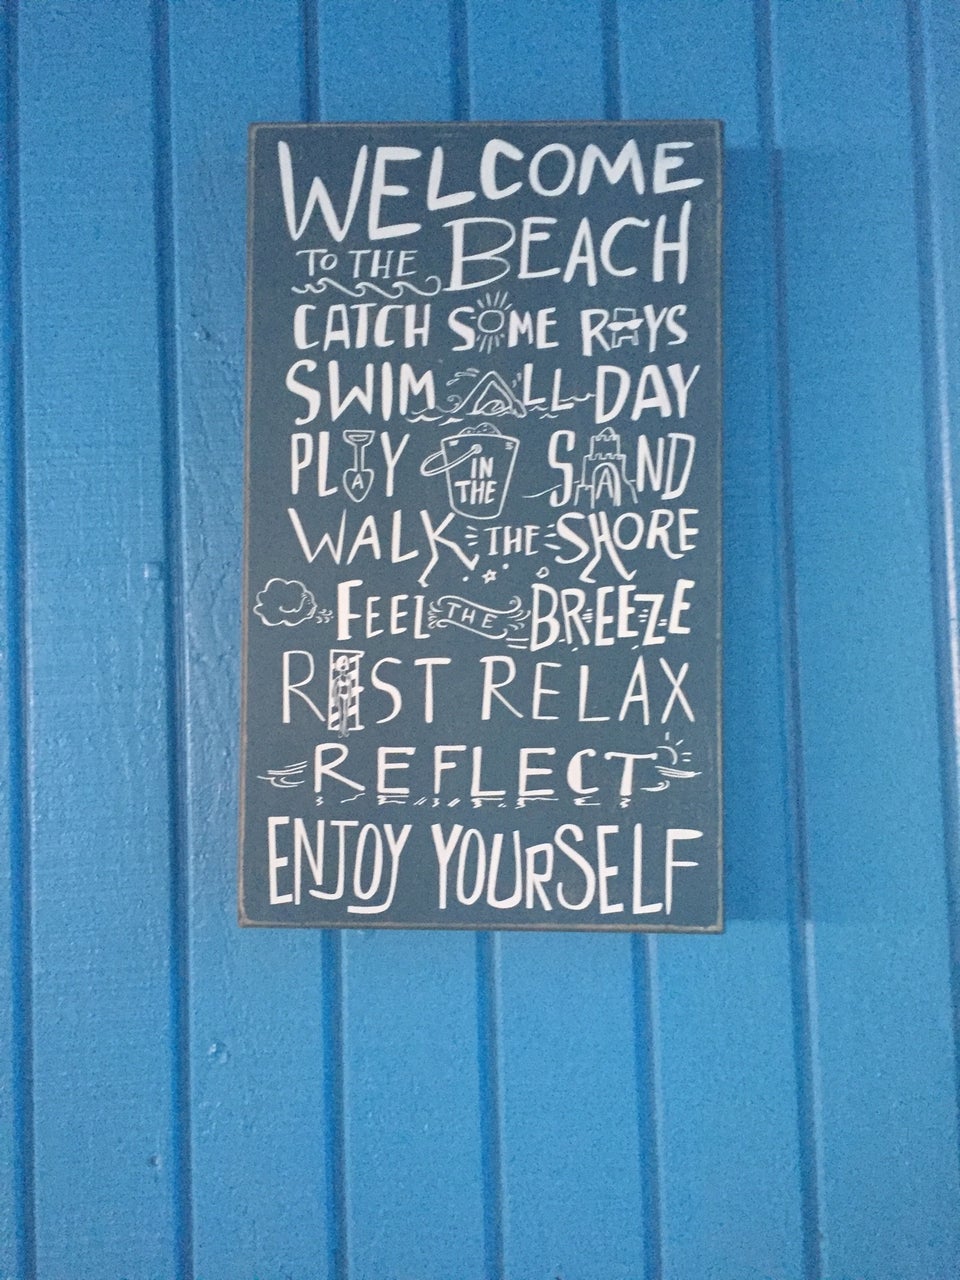 WELCOME
TO THE BEACH
CATCH SOME RAYS
SWIM ALL DAY
PLAY IN THE SAND
WALK THE SHORE
FEEL THE BREEZE
REST RELAX
REFLECT
ENJOY YOURSELF